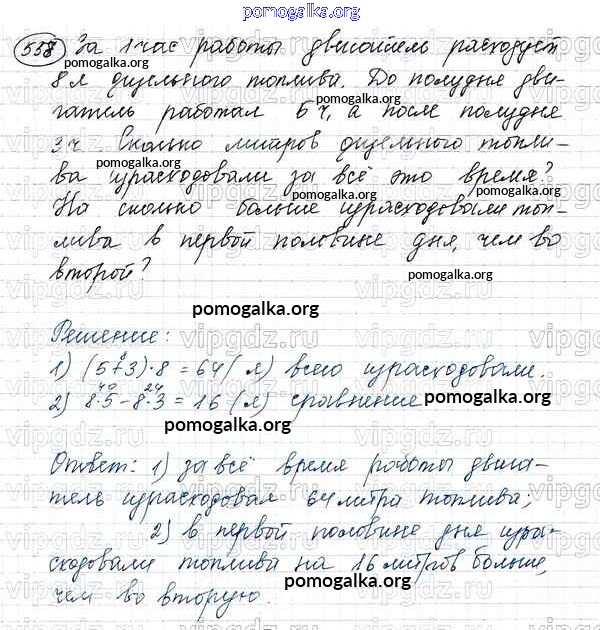 pomogalka.org
558 За 1 час работы двигатель расходует
pomogalka.org
8 л дизельного топлива. До полудня дви-
pomogalka.org
гатель работал 5 ч, а после полудня
pomogalka.org
3 ч. Сколько литров дизельного топли-
pomogalka.org
ва израсходовали за всё это время?
pomogalka.org
На сколько больше израсходовали топ-
лива в первой половине дня, чем во
второй?
pomogalka.org
pomogalka.org
Решение:
1) (5+3)·8 = 64 (л) всего израсходовали.
8
40 24
2) 8·5 - 8·3 = 16 (л) сравнение
pomogalka.org
pomogalka.org
Ответ: 1) за всё время работы двига-
тель израсходовал 64 литра топлива;
pomogalka.org
2) в первой половине дня изра-
сходовали топлива на 16 литров больше,
pomogalka.org
чем во вторую.
vipgdz.ru